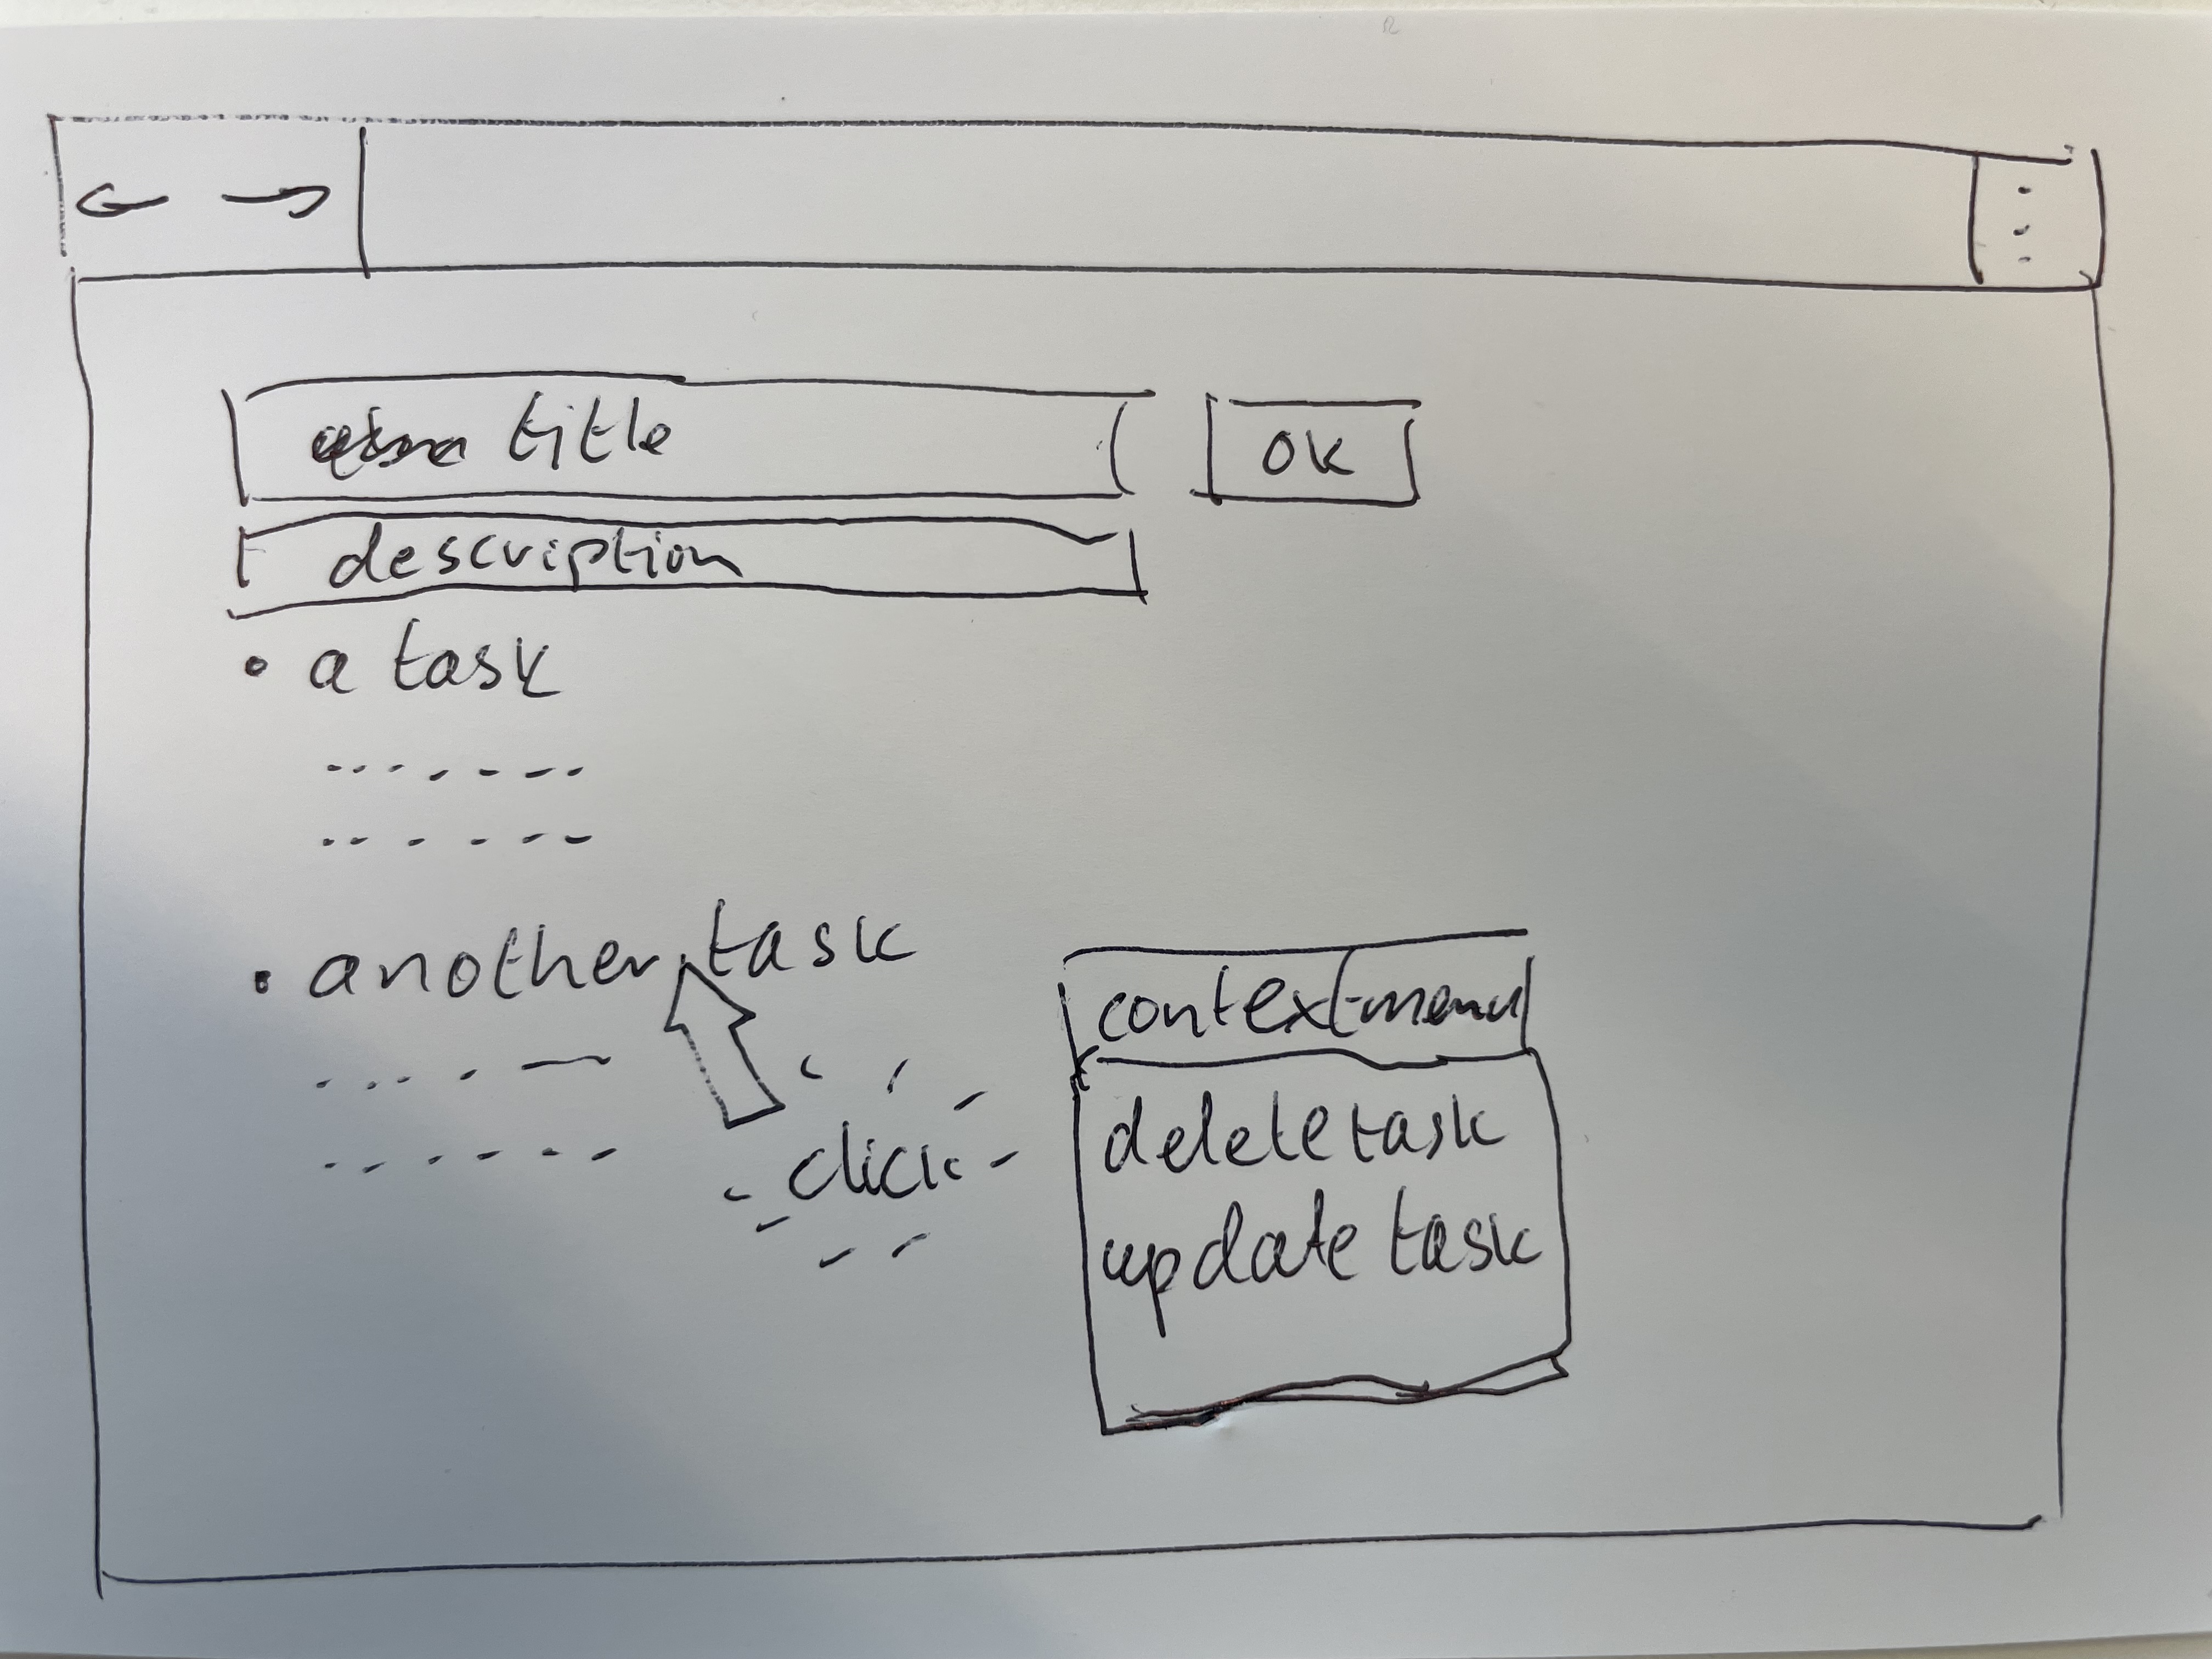 title
OK
description
• a task
• another task
click
context-menu
delete task
update task